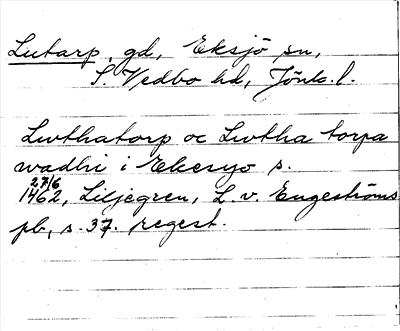 Lutarp, gd, Eksjö sn,
S Vedbo hd, Jönk. l.
Lwthatorp oc Lwtha torpa
wadhi i Ekesyo s.
27/6
1462, Liljegren, L. v. Engeströms
pb, s. 37. regest.